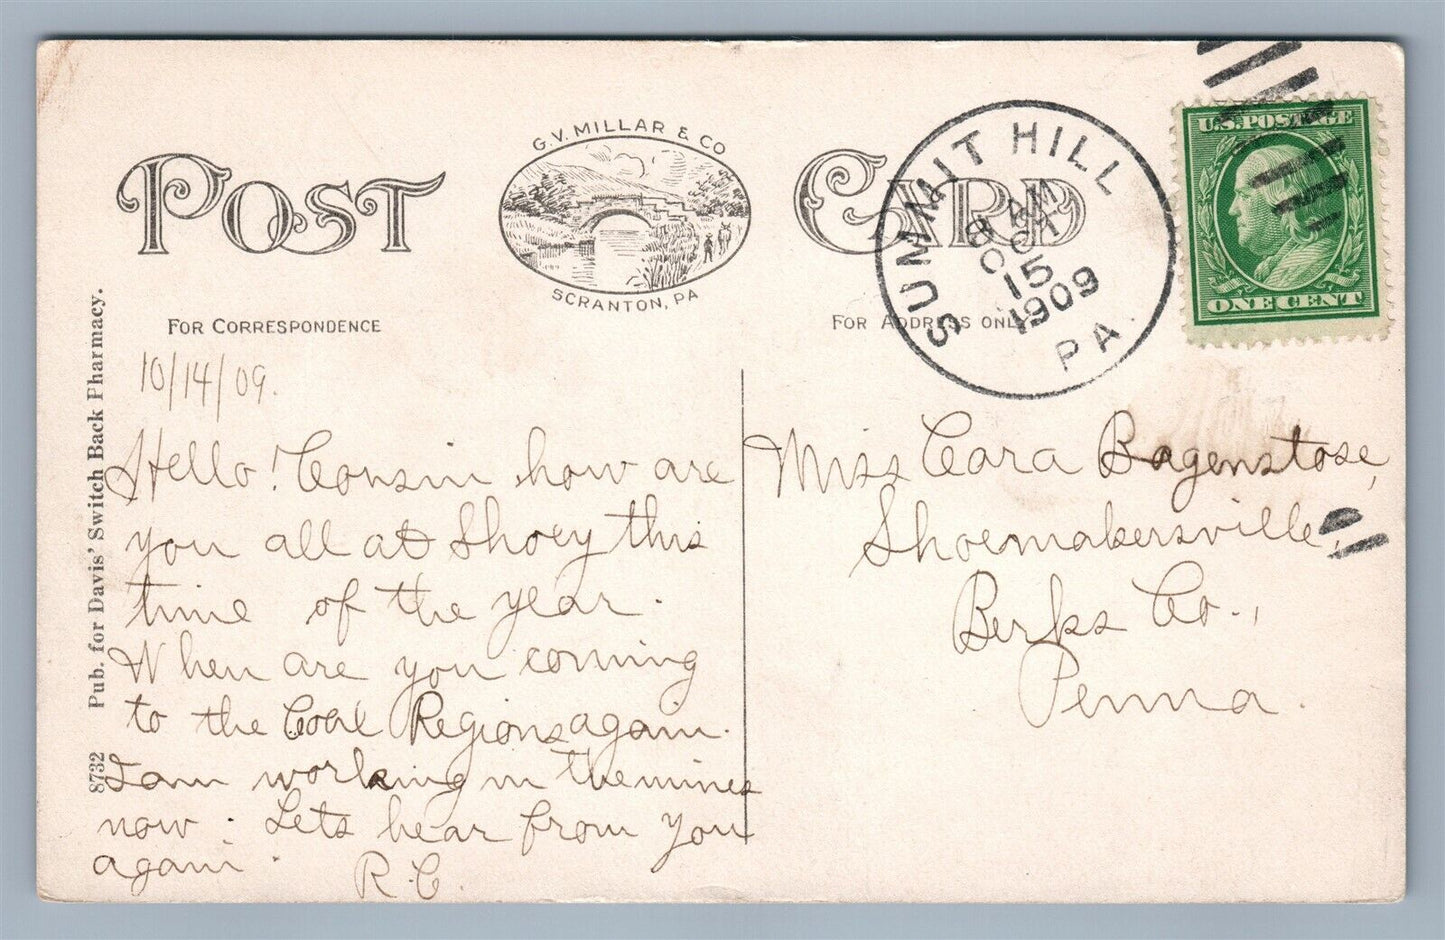 POST CARD
G.V. MILLAR & CO
SCRANTON, PA
FOR CORRESPONDENCE
FOR ADDRESS ONLY
SUMMIT HILL
AM
OCT
15
1909
PA.
U.S. POSTAGE
ONE CENT
8732 Pub. for Davis' Switch Back Pharmacy.
10/14/09.
Hello! Cousin how are
you all at Shoey this
time of the year.
When are you coming
to the Coal Regions again.
I am working in the mines
now. Lets hear from you
again.
R.C.
Miss Cora Bagenstose,
Shoemakersville,
Berks Co.,
Penna.